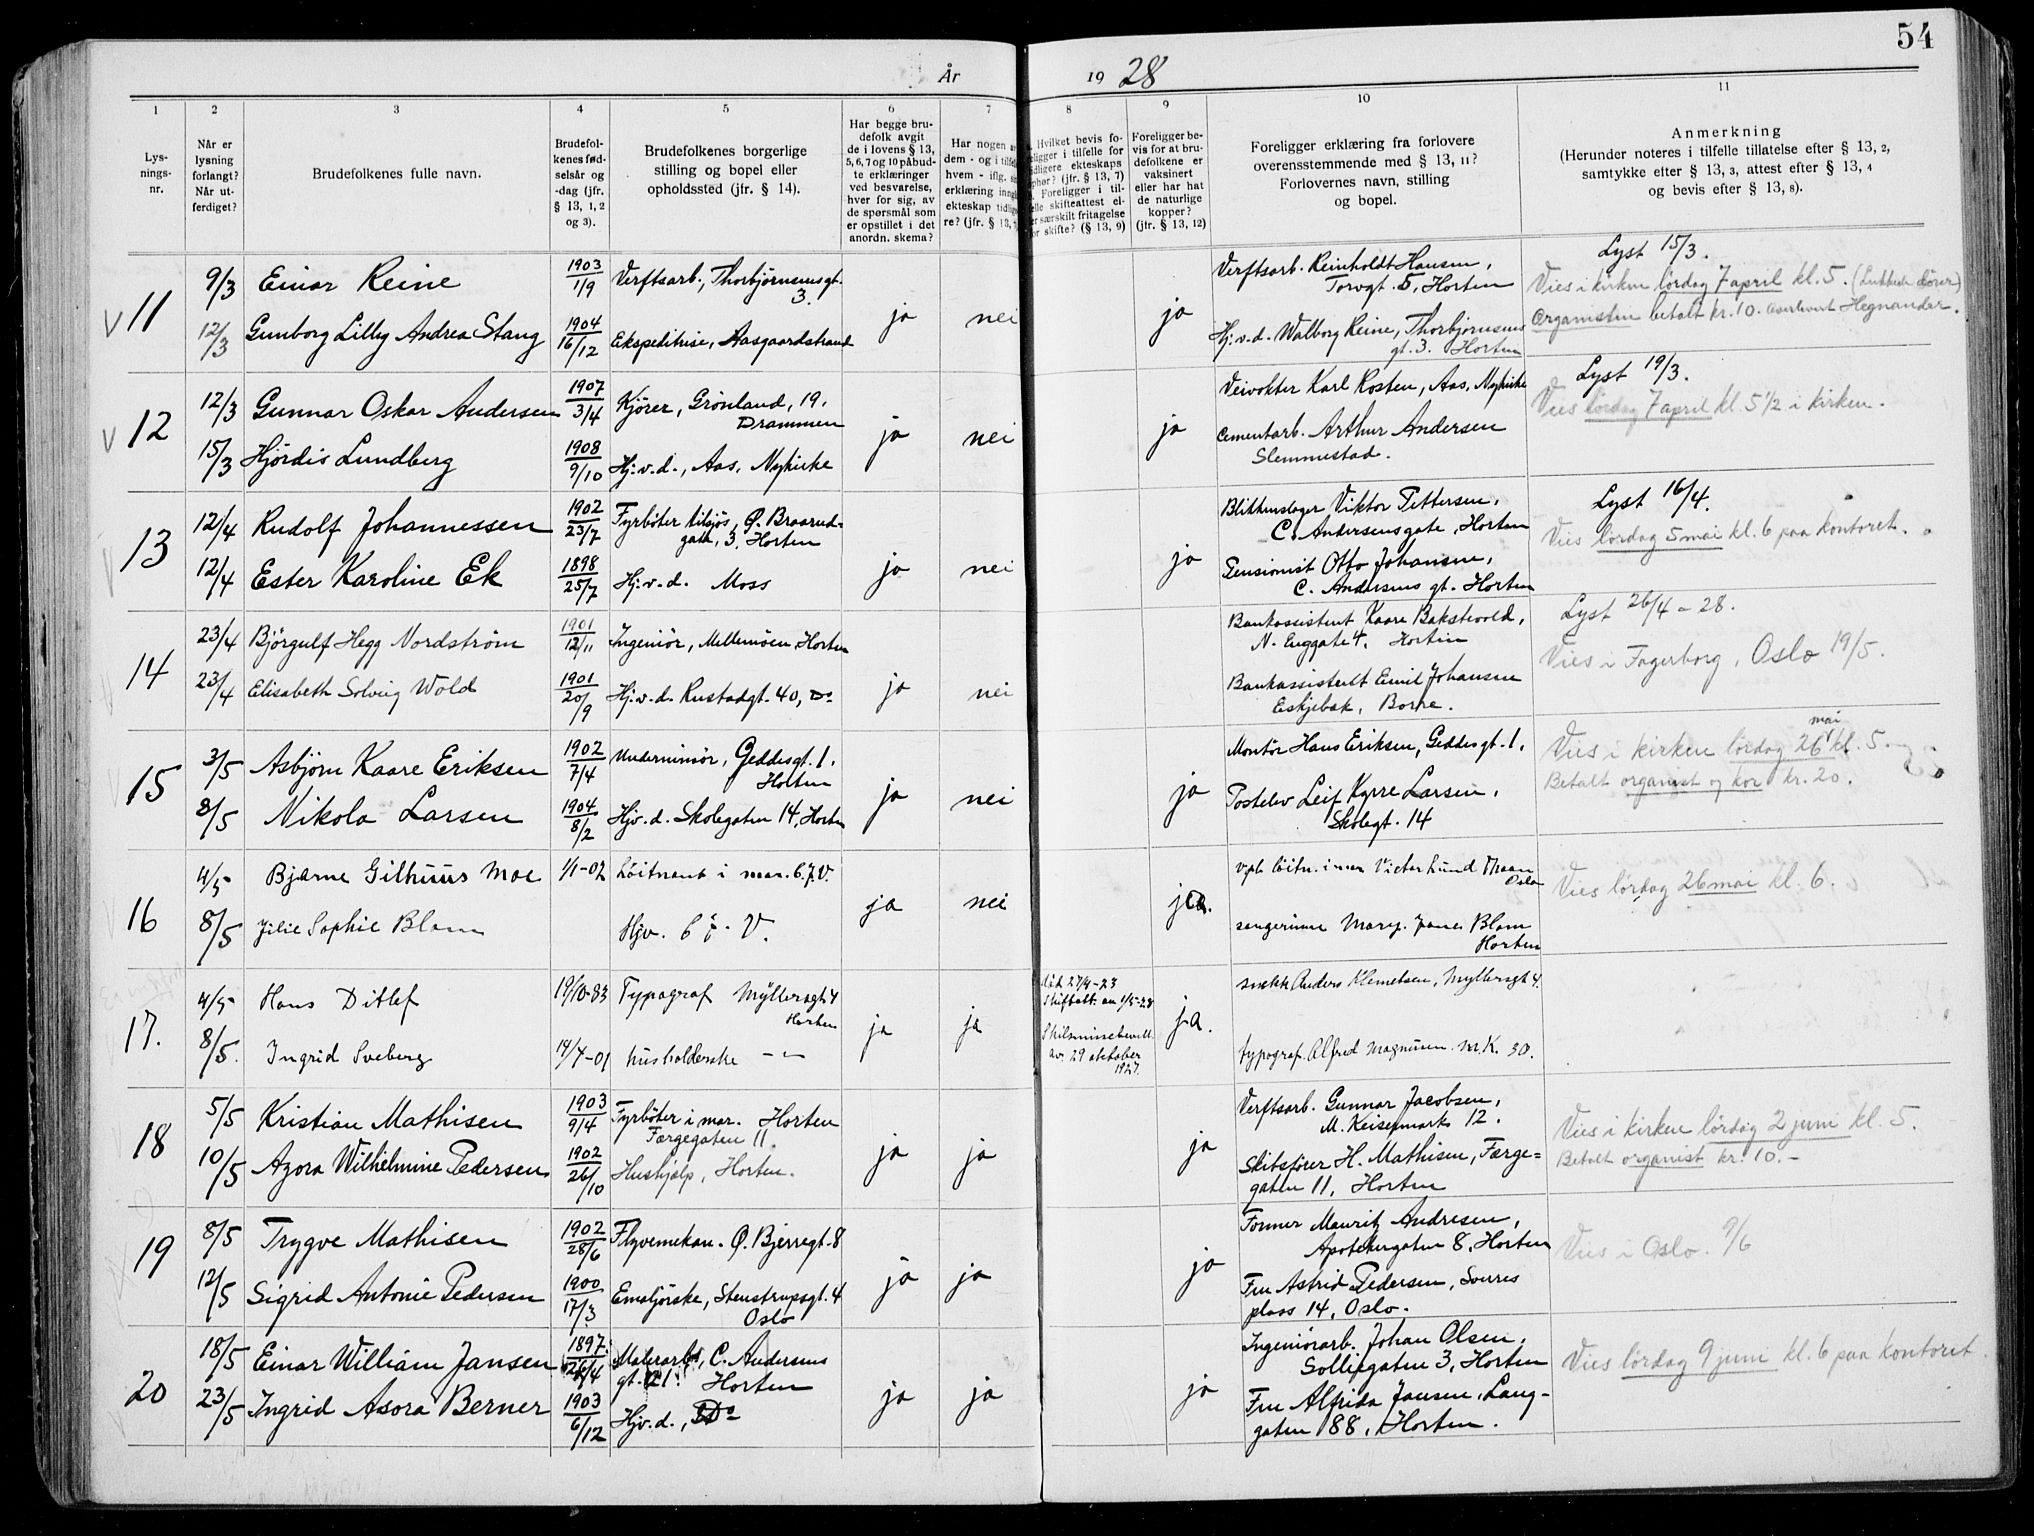 54
År 1928
1
2
3
4
5
6
7
8
9
10
11
Lys-
nings-
nr.
Når er
lysning
forlangt?
Når ut-
ferdiget?
Brudefolkenes fulle navn.
Brudefol-
kenes fød-
selsår og
-dag (jfr.
§ 13, 1, 2
og 3).
Brudefolkenes borgerlige
stilling og bopel eller
opholdssted (jfr. § 14).
Har begge bru-
defolk avgit
de i lovens § 13,
5, 6, 7 og 10 påbud-
te erklæringer
ved besvarelse,
hver for sig, av
de spørsmål som
er opstillet i det
anordn. skema?
Har nogen
dem - og i
hvem - iflg.
erklæring
ekteskap
re? (jfr. § 13,
Hvilket bevis fo-
religger i tilfelle for
tidligere ekteskaps
ophør? (jfr. § 13, 7)
Foreligger i til-
felle skifteattest el-
ler særskilt fritagelse
for skifte? (§ 13, 9)
Foreligger be-
vis for at bru-
defolkene er
vaksinert
eller har hat
de naturlige
kopper?
(jfr. § 13, 12)
Foreligger erklæring fra forlovere
overensstemmende med § 13, 11?
Forlovernes navn, stilling
og bopel.
Anmerkning
(Herunder noteres i tilfelle tillatelse efter § 13, 2,
samtykke efter § 13, 3, attest efter § 13, 4
og bevis efter § 13, 8).
V 11
9/3 Einar Reine 1903 1/9 Verftsarb., Thorbjørnsensgt.
3.
12/3 Gunborg Lilly Andrea Stang 1904 16/12 Ekspeditrise, Aasgaardstrand
ja nei ja
Verftsarb. Reinholdt Hansen,
Torvgt. 5, Horten
Hj.v.d. Walborg Reine, Thorbjørnsens
gt. 3. Horten
Lyst 15/3.
Vies i kirken lørdag 7 april kl. 5. (Lukkede dører)
Organisten betalt kr. 10. overlevert Hegnander.
V 12
12/3 Gunnar Oskar Andersen 1907 3/4 Kjører, Grønland, 19,
Drammen
15/3 Hjørdis Lundberg 1908 9/10 Hj.v.d., Aas, Nykirke
ja nei ja
Veivokter Karl Rosten, Aas, Nykirke
Cementarb. Arthur Andersen
Slemmestad.
Lyst 19/3.
Vies lørdag 7 april kl. 5 1/2 i kirken.
13
12/4 Rudolf Johannessen 1902 23/7 Fyrbøter tilsjøs, Q. Braarud-
gate, 3, Horten
12/4 Ester Karoline Ek 1898 25/7 Hj.v.d. Moss
ja nei ja
Blikkenslager Viktor Pettersen,
C. Andersensgate, Horten
Pensionist Otto Johansen,
C. Andersens gt. Horten
Lyst 16/4.
Vies lørdag 5 mai kl. 6 paa kontoret.
14
23/4 Bjørgulf Hegg Nordstrøm 1901 12/11 Ingeniør, Mellemøen Horten
23/4 Elisabeth Solveig Wold 1901 20/9 Hj.v.d. Rustadgt. 40, Do
ja nei
Bankassistent Kaare Bakstevold,
N. Enggate 4, Horten
Bankassistent Emil Johansen
Eskjebæk, Borre.
Lyst 26/4 - 28.
Vies i Fagerborg, Oslo 19/5.
15
3/5 Asbjørn Kaare Eriksen 1902 7/4 Underminør, Geddesgt. 1,
Horten
8/5 Nikola Larsen 1904 8/2 Hjv.d. Skolegaten 14, Horten
ja nei ja
Montør Hans Eriksen, Geddesgt. 1,
Postelev Leif Kyrre Larsen,
Skolegt. 14
mai
Vies i kirken lørdag 26 kl. 5
Betalt organist og kor kr. 20.
16
4/5 Bjarne Gilhuus Moe 1/1-02 Løitnant i mar.
8/5 Jilie Sophie Blom Hjv.
ja nei ja.
vpl. løitn. i mar Victor Lund Thaan
Oslo
sangerinne Mary. Jane. Blom
Horten
Vies lørdag 26 mai kl. 6.
17.
4/5 Hans Ditlef 19/10-83 Typograf Myllersgt 4
Horten
8/5. Ingrid Sveberg 14/4-01 husholderske - " -
ja ja
død 27/4-23
Skifteatt. av 1/5-28
Skilsmissebevill.
av 29 oktober
1927.
ja.
snekk Anders Klemetsen, Myllersgt 4.
typograf Alfred Magnusen M.K. 30.
18
5/5 Kristian Mathisen 1903 9/4 Fyrbøter i mar. Horten
Færgegaten 11.
10/5 Azora Wilhelmine Pedersen 1902 26/10 Hushjelp, Horten.
ja ja ja
Verftsarb. Gunnar Jacobsen,
M. Keisemark 12.
Skibsfører H. Mathisen, Færge-
gaten 11, Horten
Vies i kirken lørdag 2 juni kl. 5.
Betalt organist kr. 10.-
19
8/5 Trygve Mathisen 1902 28/6 Flyvemekan. Q. Bjerregt. 8
12/5 Sigrid Antonie Pedersen 1900 17/3 Emsljørske, Stenstrupsgt. 4
Oslo
ja ja ja
Former Mauritz Andresen,
Apotekergaten 8, Horten
Fru Astrid Pedersen, Sverres
plass 14, Oslo.
Vies i Oslo. 9/6
20
18/5 Einar William Jansen 1897 26/4 Malerarb., C. Andersens
gt. 21. Horten
23/5 Ingrid Asora Berner 1903 6/12 Hjv.d., Do
ja ja ja
Ingeniørarb. Johan Olsen,
Solliegaten 3, Horten
Fru Alfrida Jansen, Lang-
gaten 88, Horten.
Vies lørdag 9 juni kl. 6 paa kontoret.